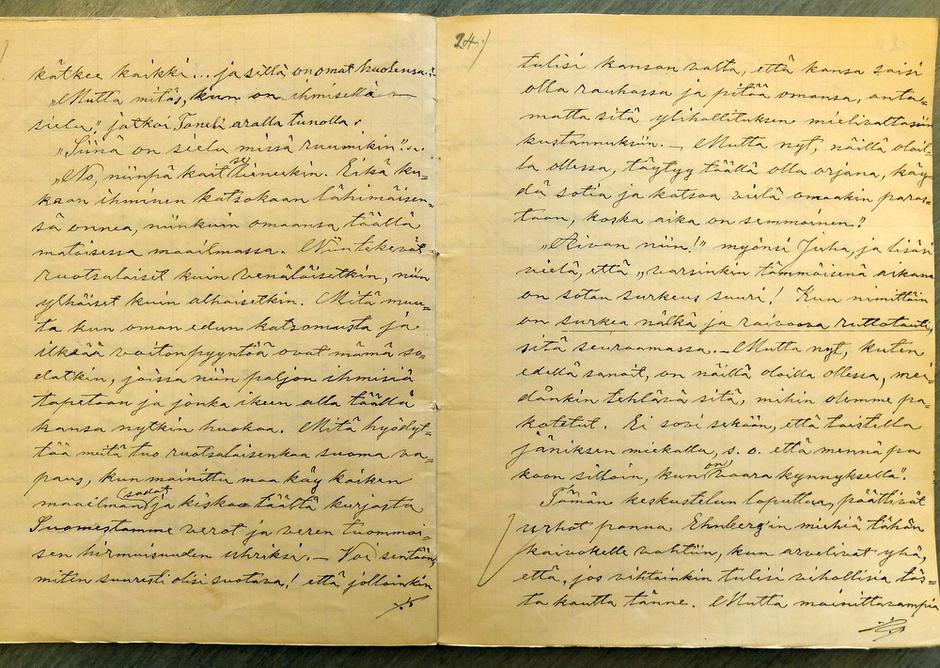 kätkee kaikki... ja sillä on omat huolensa.
"Mutta mitäs, kun on ihmisellä
sielu," jatkoi Taneli aralla tunolla.
"Siinä on sielu missä ruumikin"...
"No, niinpä kait se lieneekin. Eikä ku-
kaan ihminen katsokaan lähimäisen-
sä onnea, niinkuin omaansa täällä
matoisessa maailmassa. Niin tekevät
ruotsalaiset kuin venäläisetkin, niin
ylhäiset kuin alhaisetkin. Mitä muu-
ta kun oman edun katsomusta ja
ilkeää voitonpyyntöä ovat nämä so-
datkin, joissa niin paljon ihmisiä
tapetaan ja jonka ikeen alla täällä
kansa nytkin huokaa. Mitä hyödyt-
tää meitä tuo ruotsalaisenkaa suoma va-
paus, kun mainittu maa käy kaiken
maailman sodat ja kiskoo täältä kurjasta
Suomestamme verot ja veren tuommoi-
sen hirmuisuuden uhriksi. — Voi sentään
miten suuresti olisi suotava, että jolloinkin
24.
tulisi kansan valta, että kansa saisi
olla rauhassa ja pitää omansa, anta-
matta sitä ylihallituksen mielivaltasiin
kustannuksiin. — Mutta nyt, näillä oloil-
la ollessa, täytyy täällä olla orjana, käy-
dä sotia ja katsoa vielä omaakin paras-
taan, koska aika on semmoinen."
"Aivan niin!" myönsi Juha, ja lisäsi
vielä, että "varsinkin tämmöisenä aikana
on sotan surkeus suuri! Kun nimittäin
on surkea nälkä ja raivoova ruttotauti,
sitä seuraamassa. — Mutta nyt, kuten
edellä sanoit, on näillä oloilla ollessa, mei-
dänkin tehtävä sitä, mihin olemme pa-
kotetut. Ei sovi sekään, että taistella
jäniksen miekalla, s. o. että mennä pa-
koon silloin, kun on vaara kynnyksellä".
Tämän keskustelun loputtua, päättivät
urhot panna Ehnberg'in miehiä tähän
kaivokelle vahtiin, kun arvelivat yhä,
että, jos vihtainkin tulisi vihollisia täs-
tä kautta tänne. Mutta mainittavampia